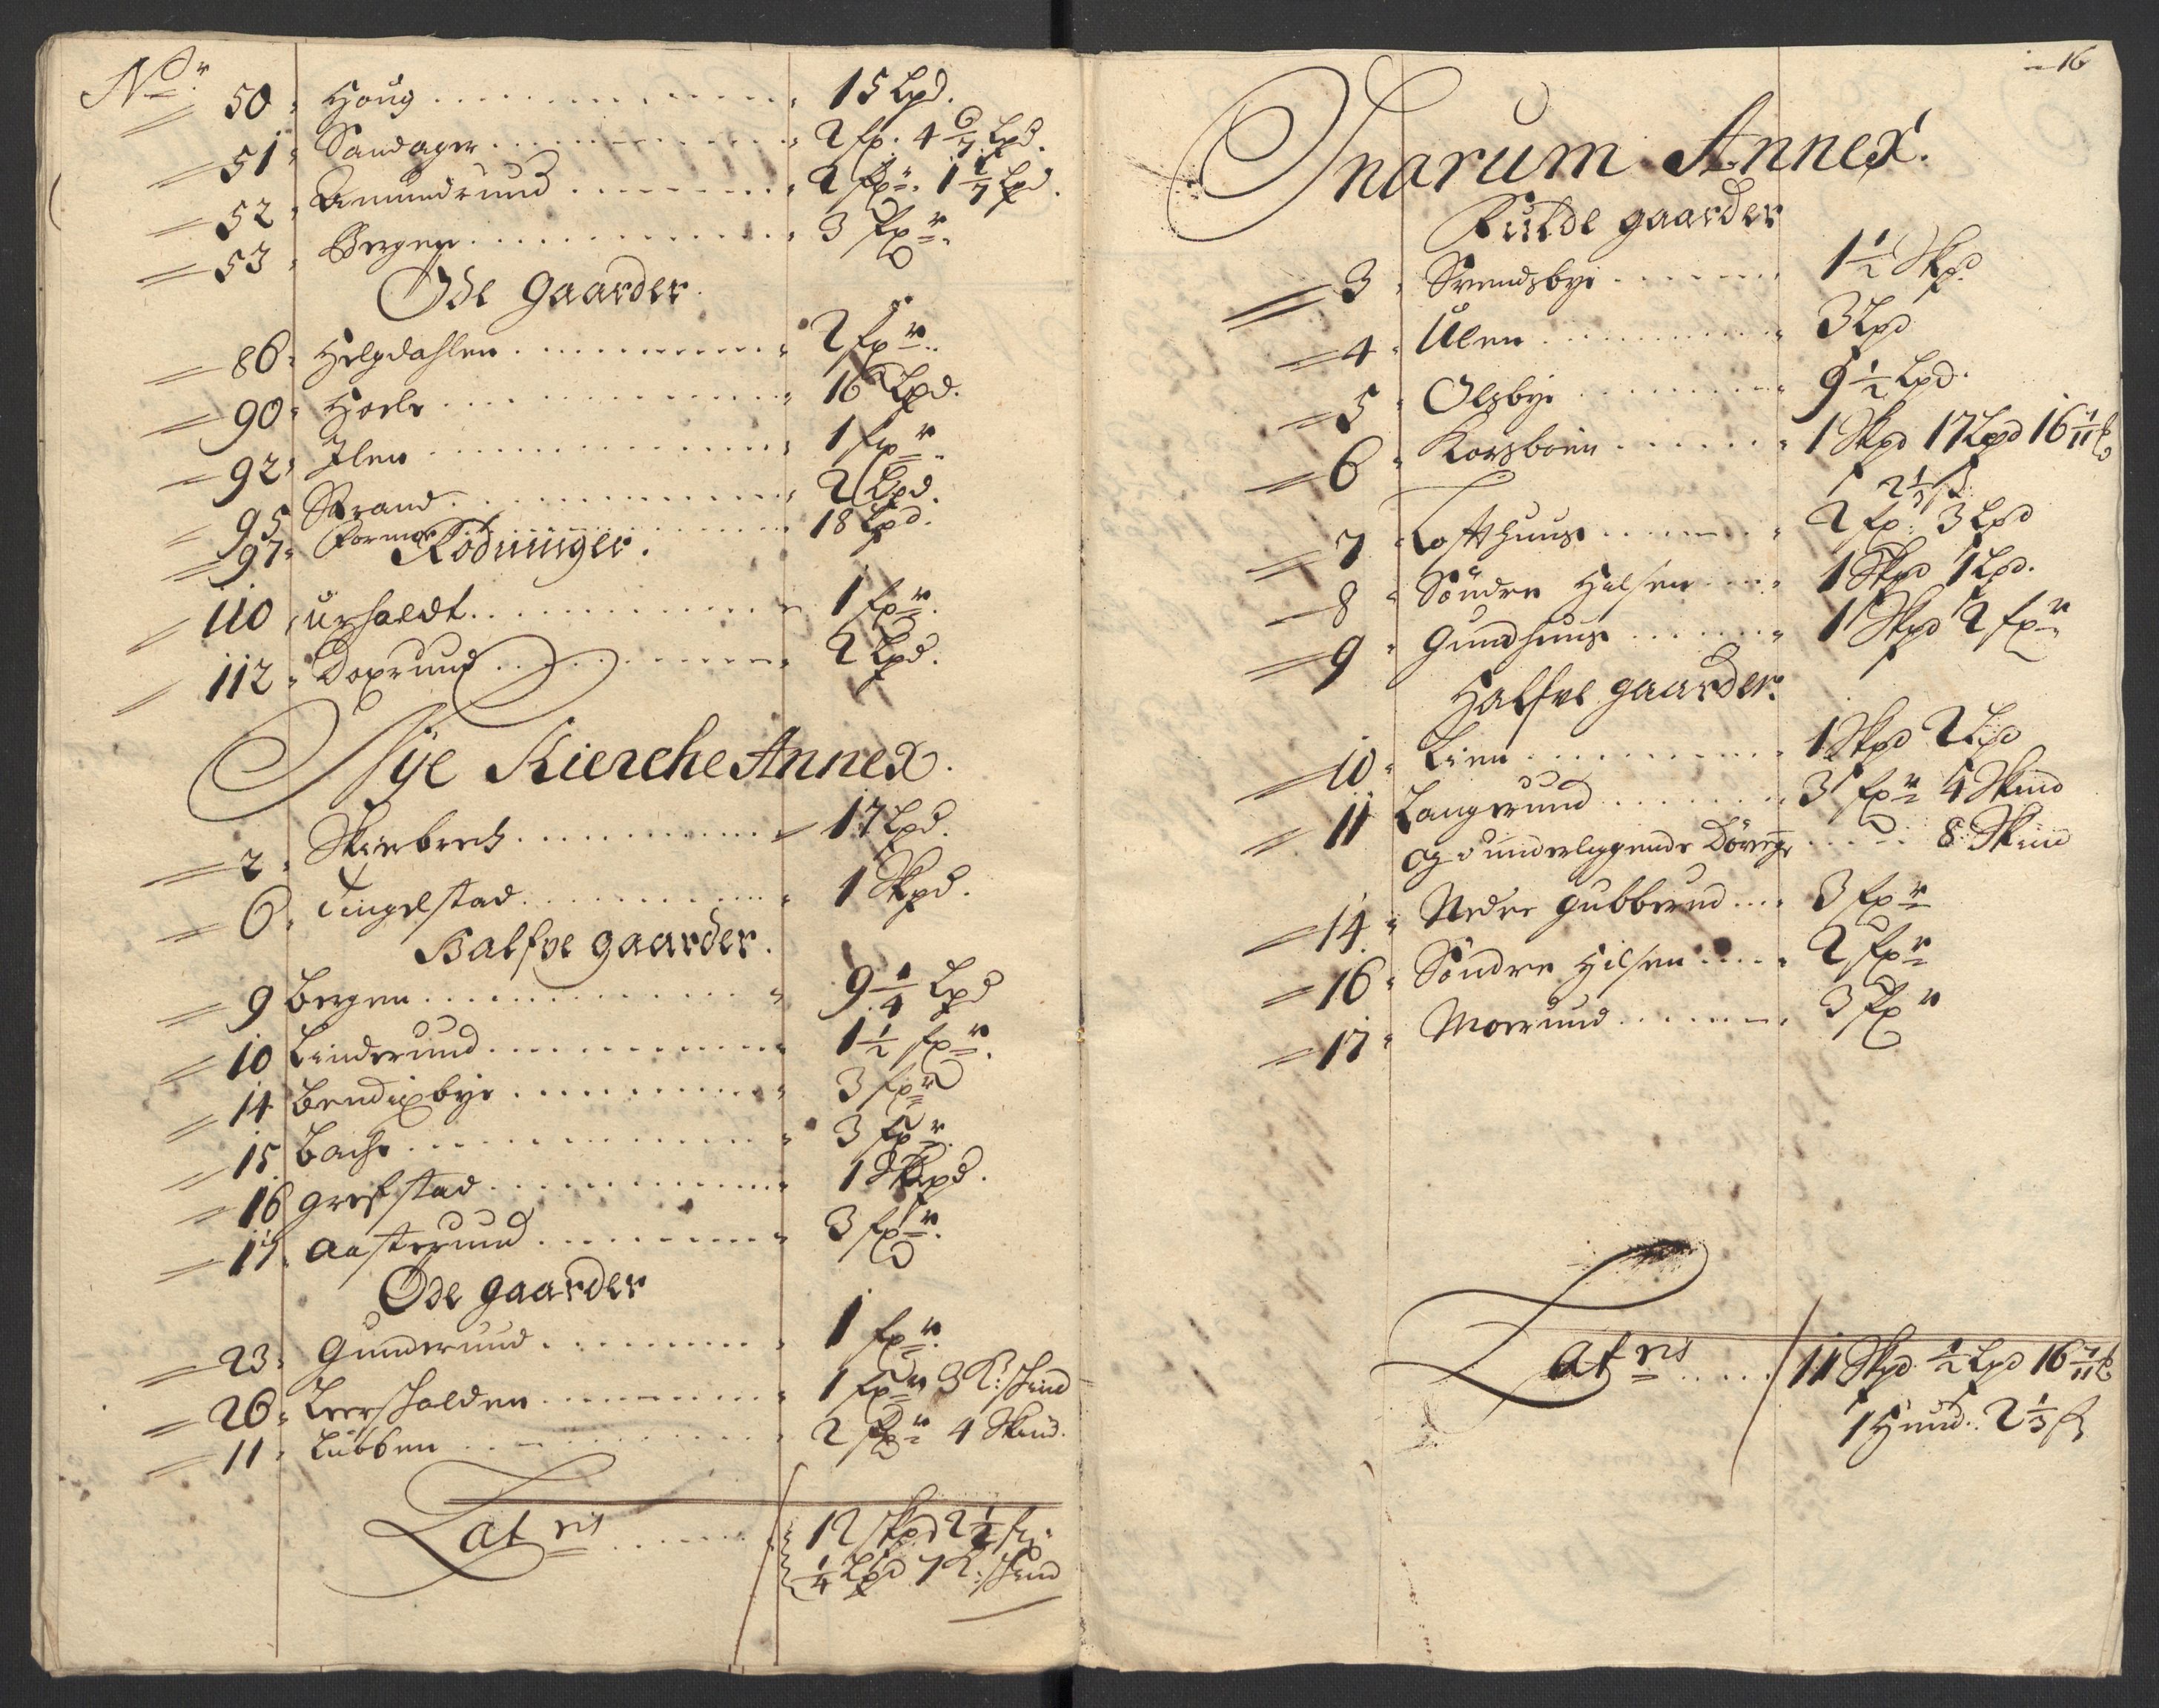 No:r
50 Houg 15 Lpd.
51 Sandager 2 fr. 4 6/7 Lpd.
52 Amundrund 2 fr. 1 1/7 Lpd.
53 Bergen 3 fr.
Öde gaarder.
86 Helgdahlen 2 fr.
90 Hoele 16 Lpd.
92 Ilen 1 fr.
95 Strand 2 Lpd.
97 Formo 18 Lpd.
Rödninger.
110 Urholdt 1 fr.
112 Doxrund 2 Lpd.
Nÿe Kierche Annex.
2 Skiebreck 17 Lpd.
6 Tingelstad 1 Skpd.
Halfve gaarder.
9 Bergen 9 1/4 Lpd
10 Linderund 1 1/2 fr.
14 Bendixbye 3 fr.
15 Bache 3 fr.
16 Grefstad 1 Skpd.
17 Aasterund 3 fr.
Öde gaarder
23 Gunderund 1 fr.
26 Leerskalden 1 fr. 3 K: skind
11 Lubben 2 fr. 4 Skind.
Lat:ris 12 skpd 2 1/2 fr.
1/4 Lpd 7 K: skind
16
Snarum Annex.
Fulde gaarder
3 Svendsbye 1 1/2 Skpd
4 Ulen 3 Lpd
5 Olsbye 9 1/2 Lpd.
6 Korsboen 1 Skpd 17 Lpd 16 4/11 ℔
2 1/3 ß
7 Lofthuus 2 fr. 3 Lpd
8 Söndre Hilsen 1 Skpd 1 Lpd.
9 Gundhuus 1 Skpd 2 fr.
Halfve gaarder.
10 Lien 1 Skpd 2 Lpd
11 Langerund 3 fr. 4 Skind
og underliggende 8 Skind
14 Nedre Gubberud 3 fr.
16 Söndre Hilsen 2 fr.
17 Moerund 3 fr.
Lat:ris 11 Skpd 1/2 Lpd 16 4/11 ℔
1 Huud. 2 1/3 ß